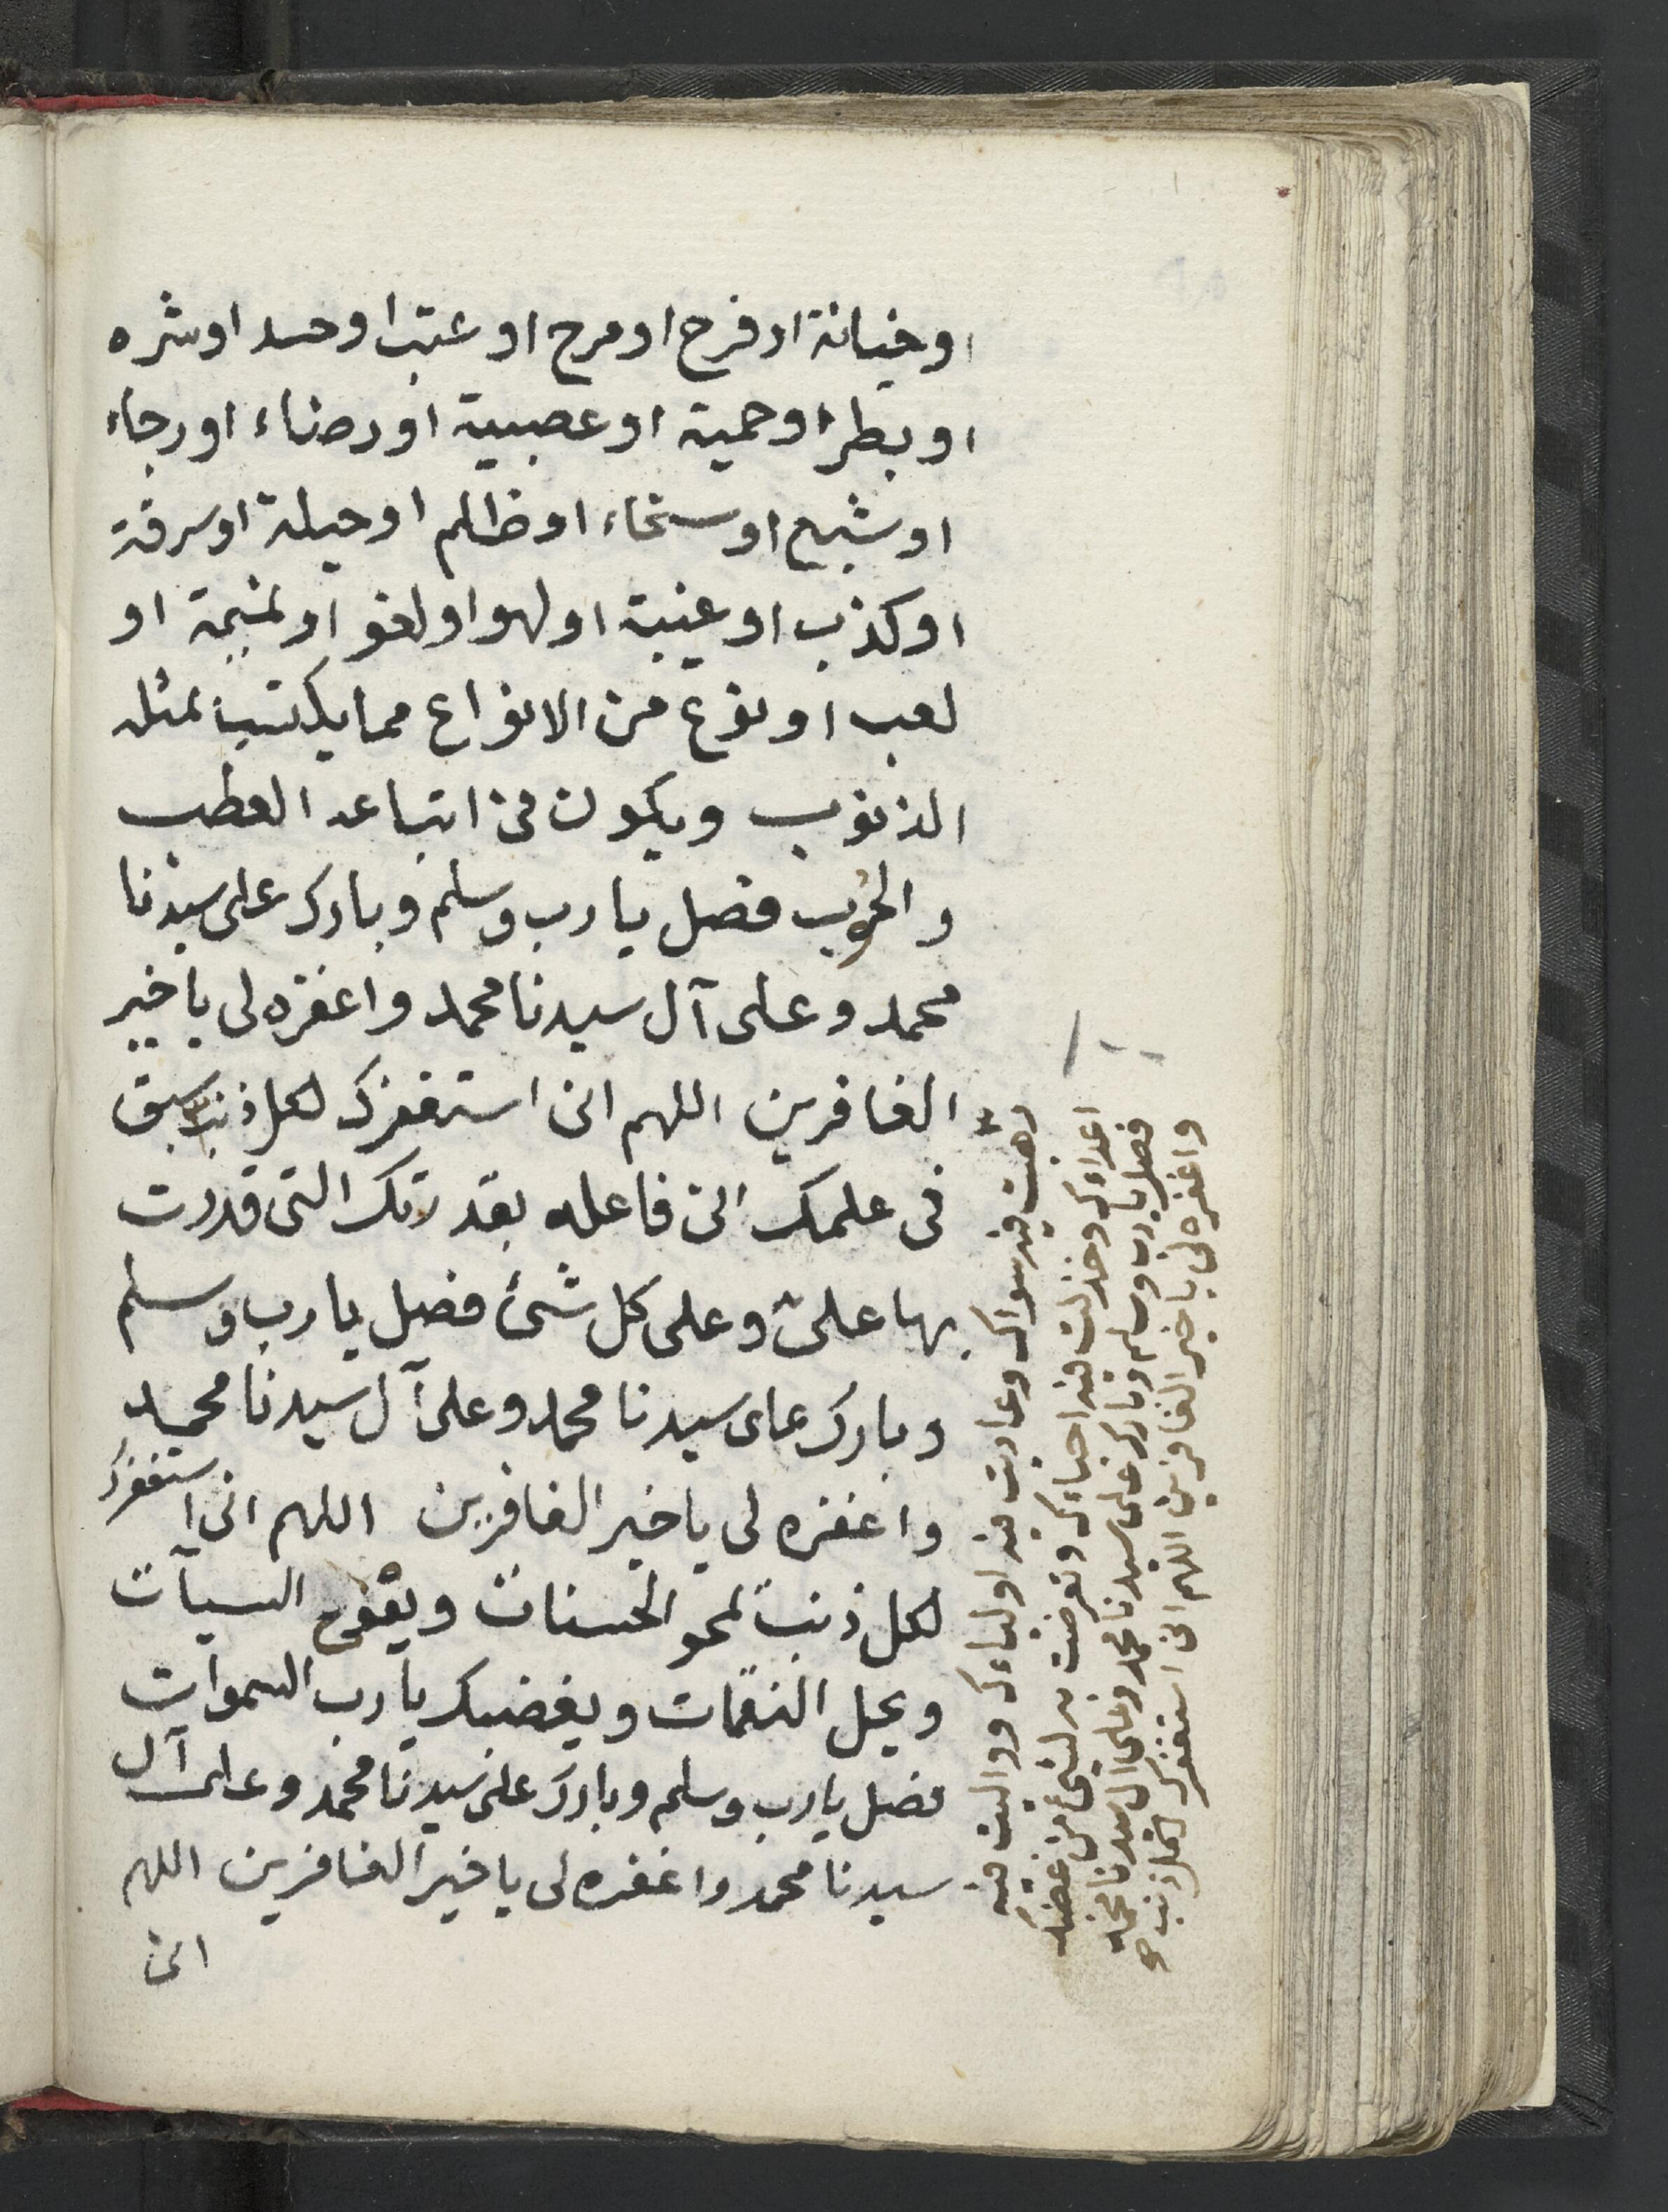 او خيانة او فرح او مرح او عتبا او حسد او شره
او بطر او حمية او عصبية او رضاء او رجاء
او شبع او سخاء او ظلم او حيلة او سرقة
او كذب او غيبة او لهو او لغو او نميمة او
لعب او نوع من الانواع مما يكتسب بمثله
الذنوب ويكون فى اتباعه العطب
والحوب فصل يا رب وسلم وبارك على سيدنا
محمد وعلى آل سيدنا محمد واغفره لى يا خير
الغافرين اللهم انى استغفرك لكل ذنب سبق
فى علمك انى فاعله بقدرتك التى قدرت
بها علىّ وعلى كل شئ فصل يا رب وسلم
وبارك على سيدنا محمد وعلى آل سيدنا محمد
واغفره لى يا خير الغافرين اللهم انى استغفرك
لكل ذنب يمحو الحسنات ويضع السيآت
ويحل النقمات ويغضبك يا رب السموات
فصل يا رب وسلم وبارك على سيدنا محمد وعلى آل
سيدنا محمد واغفره لى يا خير الغافرين اللهم
انى
١٠٠
رهبت فيه سواك وعاديت فيه اولياءك وواليت فيه
اعداءك وخذلت فيه احباءك وتعرضت به لشئ من غضبك
فصل يا رب وسلم وبارك على سيدنا محمد وعلى آل سيدنا محمد
واغفره لى يا خير الغافرين اللهم انى استغفرك لكل ذنب